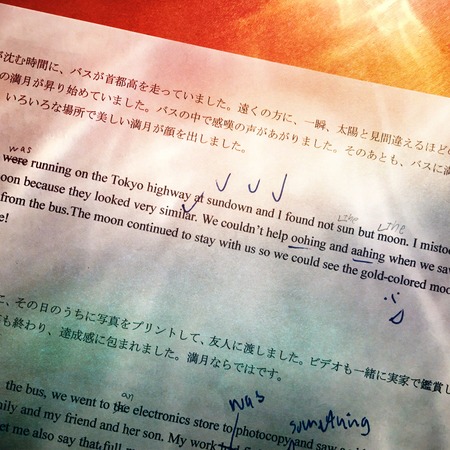 が沈む時間に、バスが首都高を走っていました。遠くの方に、一瞬、太陽と見間違えるほどの
の満月が昇り始めていました。バスの中で感嘆の声があがりました。そのあとも、バスに満
いろいろな場所で美しい満月が顔を出しました。
was
were running on the Tokyo highway at sundown and I found not sun but moon. I mistoo
Like Line
oon because they looked very similar. We couldn't help oohing and aahing when we saw
from the bus.The moon continued to stay with us so we could see the gold-colored moo
e!
に、その日のうちに写真をプリントして、友人に渡しました。ビデオも一緒に実家で鑑賞し
も終わり、達成感に包まれました。満月ならではです。
an
was
the bus, we went to the electronics store to photocopy and saw
something
mily and my friend and her son. My work
et me also say that full